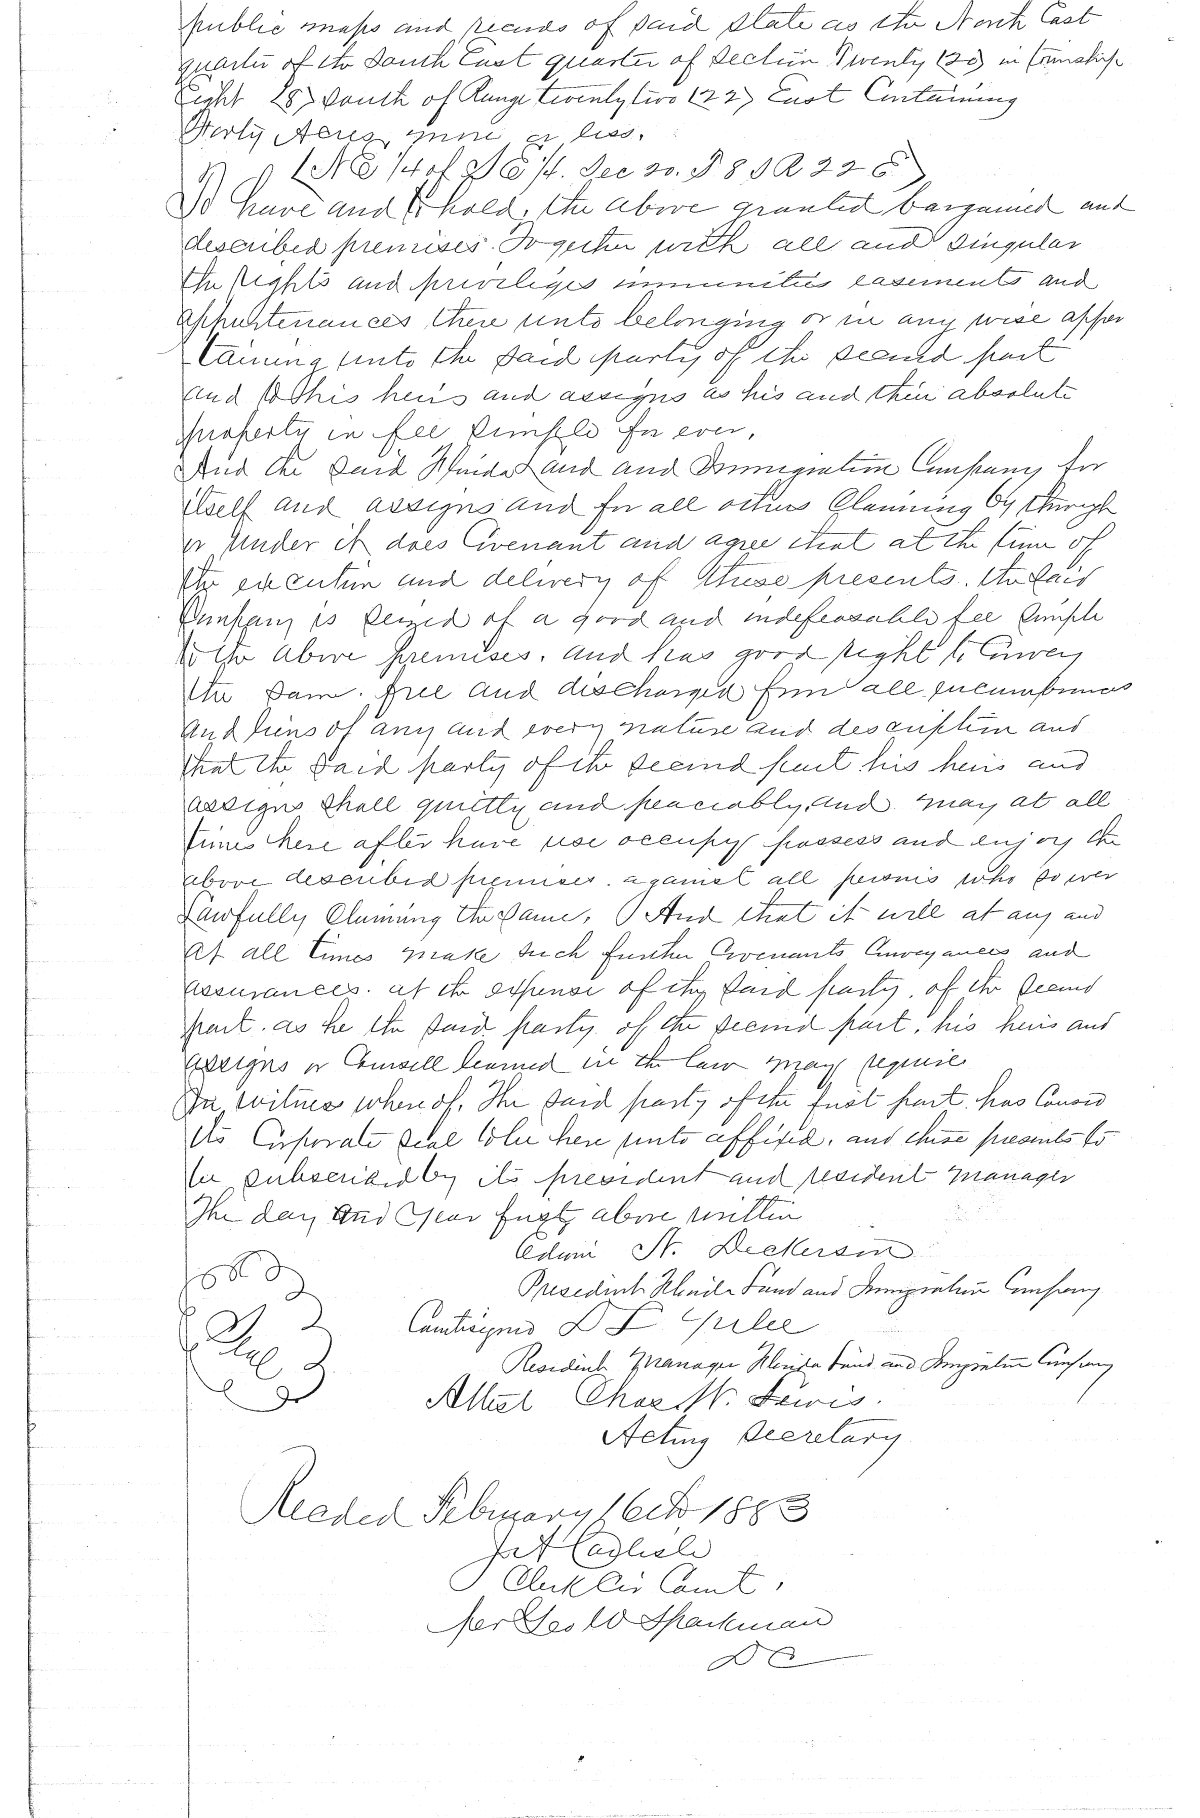 public maps and records of said State as the North East
quarter of the South East quarter of Section Twenty (20) in township
Eight (8) South of Range twenty two (22) East Containing
Forty Acres more or less.
(N E 1/4 of S E 1/4. Sec 20. T 8 S R 22 E)
To have and to hold, the above granted bargained and
described premises. Together with all and singular
the rights and priveliges immunities easements and
appurtenances there unto belonging or in any wise apper
taining unto the said party of the second part
and to his heirs and assigns as his and their absolute
property in fee simple for ever.
And the said Florida Land and Immigration Company for
itself and assigns and for all others Claiming by through
or under it does Covenant and agree that at the time of
the execution and delivery of these presents. the said
Company is seized of a good and indefeasable fee simple
to the above premises. and has good right to Convey
the same. free and discharged from all encumbrances
and liens of any and every nature and description and
that the said party of the second part his heirs and
assigns shall quietly and peaceably, and may at all
times here after have use occupy possess and enjoy the
above described premises. against all persons who so ever
Lawfully Claiming the same. And that it will at any and
at all times make such further Covenants Conveyances and
assurances. at the expense of the said party. of the second
part. as he the said party of the second part, his heirs and
assigns or Counsell learned in the law may require
In witness where of, The said party of the first part has Caused
its Corporate seal to be here unto affixed. and these presents to
be subscribed by its president and resident manager
The day and year first above written
Edwin N. Dickerson
President Florida Land and Immigration Company
Countersigned D L Yulee
Seal
Resident Manager Florida Land and Immigration Company
Attest Chas. W. Lewis.
Acting Secretary
Recded February 16th 1883
Clerk Cir Court.
Per Geo W Sparkman
D C